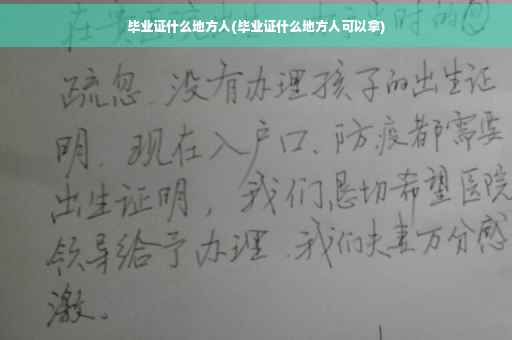 毕业证什么地方人(毕业证什么地方人可以拿)
在贵医院出生,
时的
疏忽、没有办理孩子的出生证
明、现在入户口、防疫都需要
出生证明，我们恳切希望医院
领导给予办理、我们夫妻万分感
激。